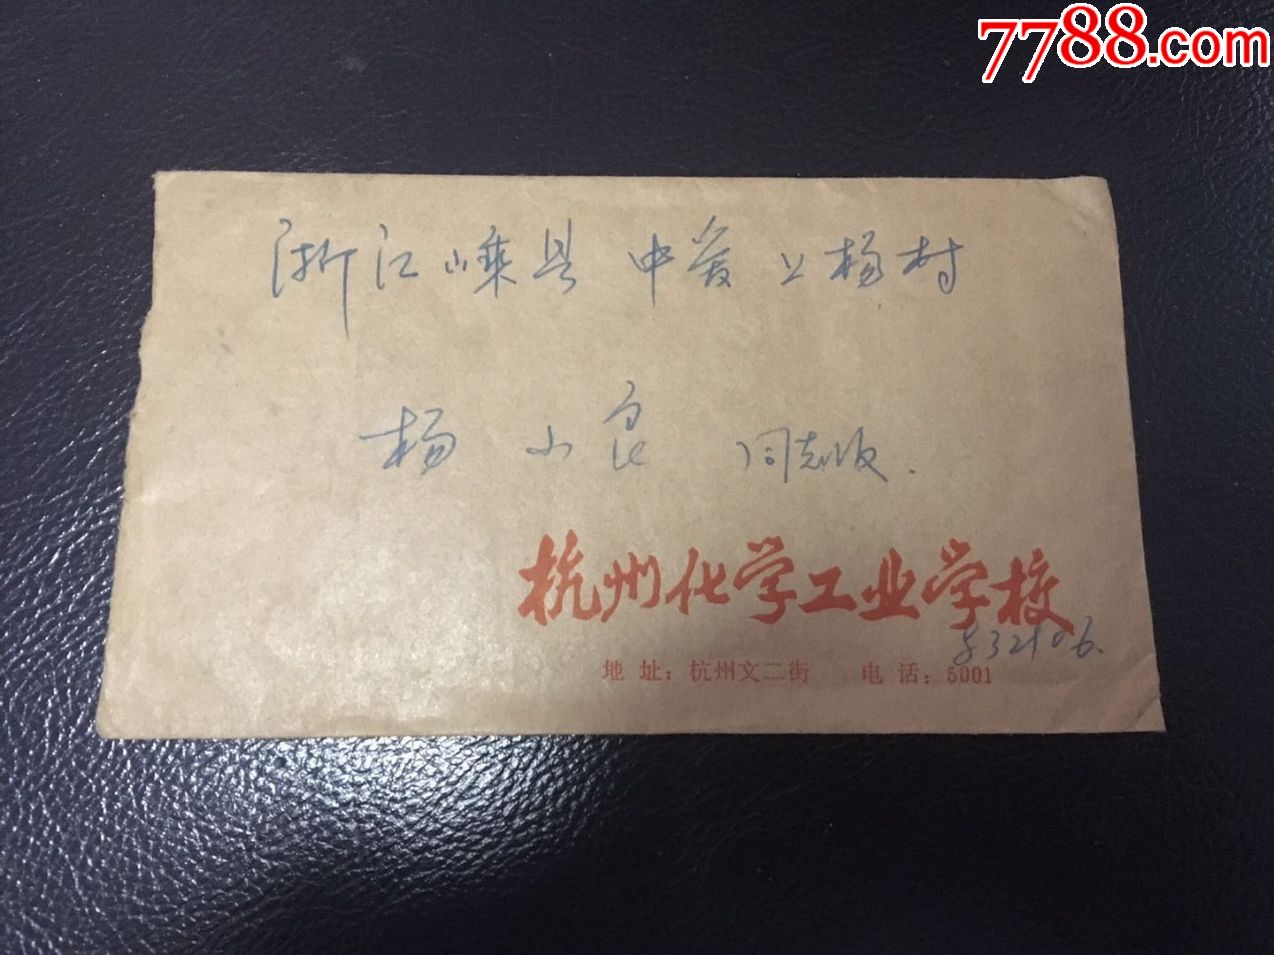 7788.com
浙江嵊县 中爱上杨村
杨小良 同志收.
杭州化学工业学校
地址：杭州文二街 电话：5001